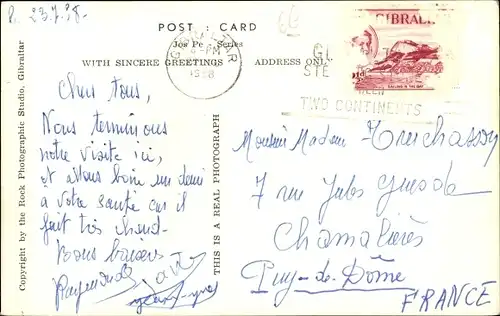 R. 23.7.58.
POST CARD
Jos Pe Series
WITH SINCERE GREETINGS
ADDRESS ONLY
GIBRALTAR
PM
GIBRAL
SAILING IN THE BAY
GI
STE
TWO CONTINENTS
Copyright by the Rock Photographic Studio, Gibraltar
THIS IS A REAL PHOTOGRAPH
Chers tous,
Nous terminons
notre visite ici,
et allons boire un demi
à votre santé car il
fait très chaud.
Bons baisers
Raymonde
Monsieur Madame
7 rue Jules Guesde
Chamalières
Puy-de-Dôme
FRANCE